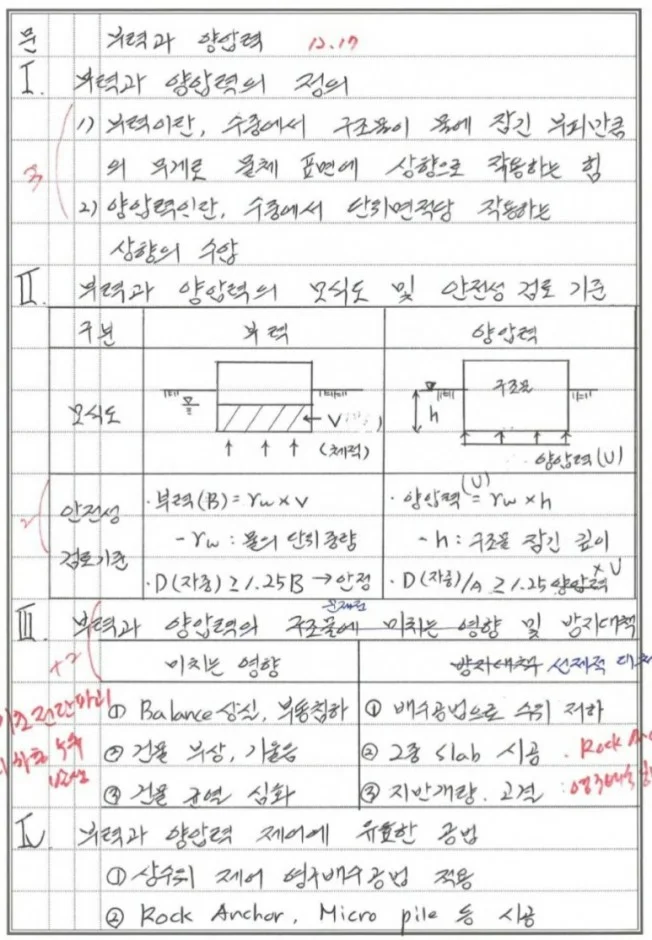 문 부력과 양압력 12.17
I. 부력과 양압력의 정의
1) 부력이란, 수중에서 구조물이 물에 잠긴 부피만큼
의 무게로 물체 표면에 상향으로 작용하는 힘
3
2) 양압력인란, 수중에서 단위면적당 작용하는
상향의 수압
II. 부력과 양압력의 모식도 및 안전성 검토 기준
구분 부력 양압력
모식도
V
(체적)
구조물
h
양압력(U)
안전성
검토기준
2
· 부력(B) = γw × V
- γw : 물의 단위중량
· D(자중) ≥ 1.25B → 안정
· 양압력(U) = γw × h
- h : 구조물 잠긴 깊이
· D(자중)/A ≥ 1.25 양압력 × U
문제점
III. 부력과 양압력의 구조물에 미치는 영향 및 방지대책
+2
미치는 영향 방지대책 선제적
기초 전단파괴
① Balance 상실, 부동침하 ① 배수공법으로 수위 저하
누수
② 건물 부상, 기울음 ② 2중 slab 시공 . Rock
③ 건물 균열 심화 ③ 지반개량. 고결 : 영구배수
IV 부력과 양압력 제어에 유효한 공법
① 상수위 제어 영구배수공법 적용
② Rock Anchor, Micro pile 등 시공